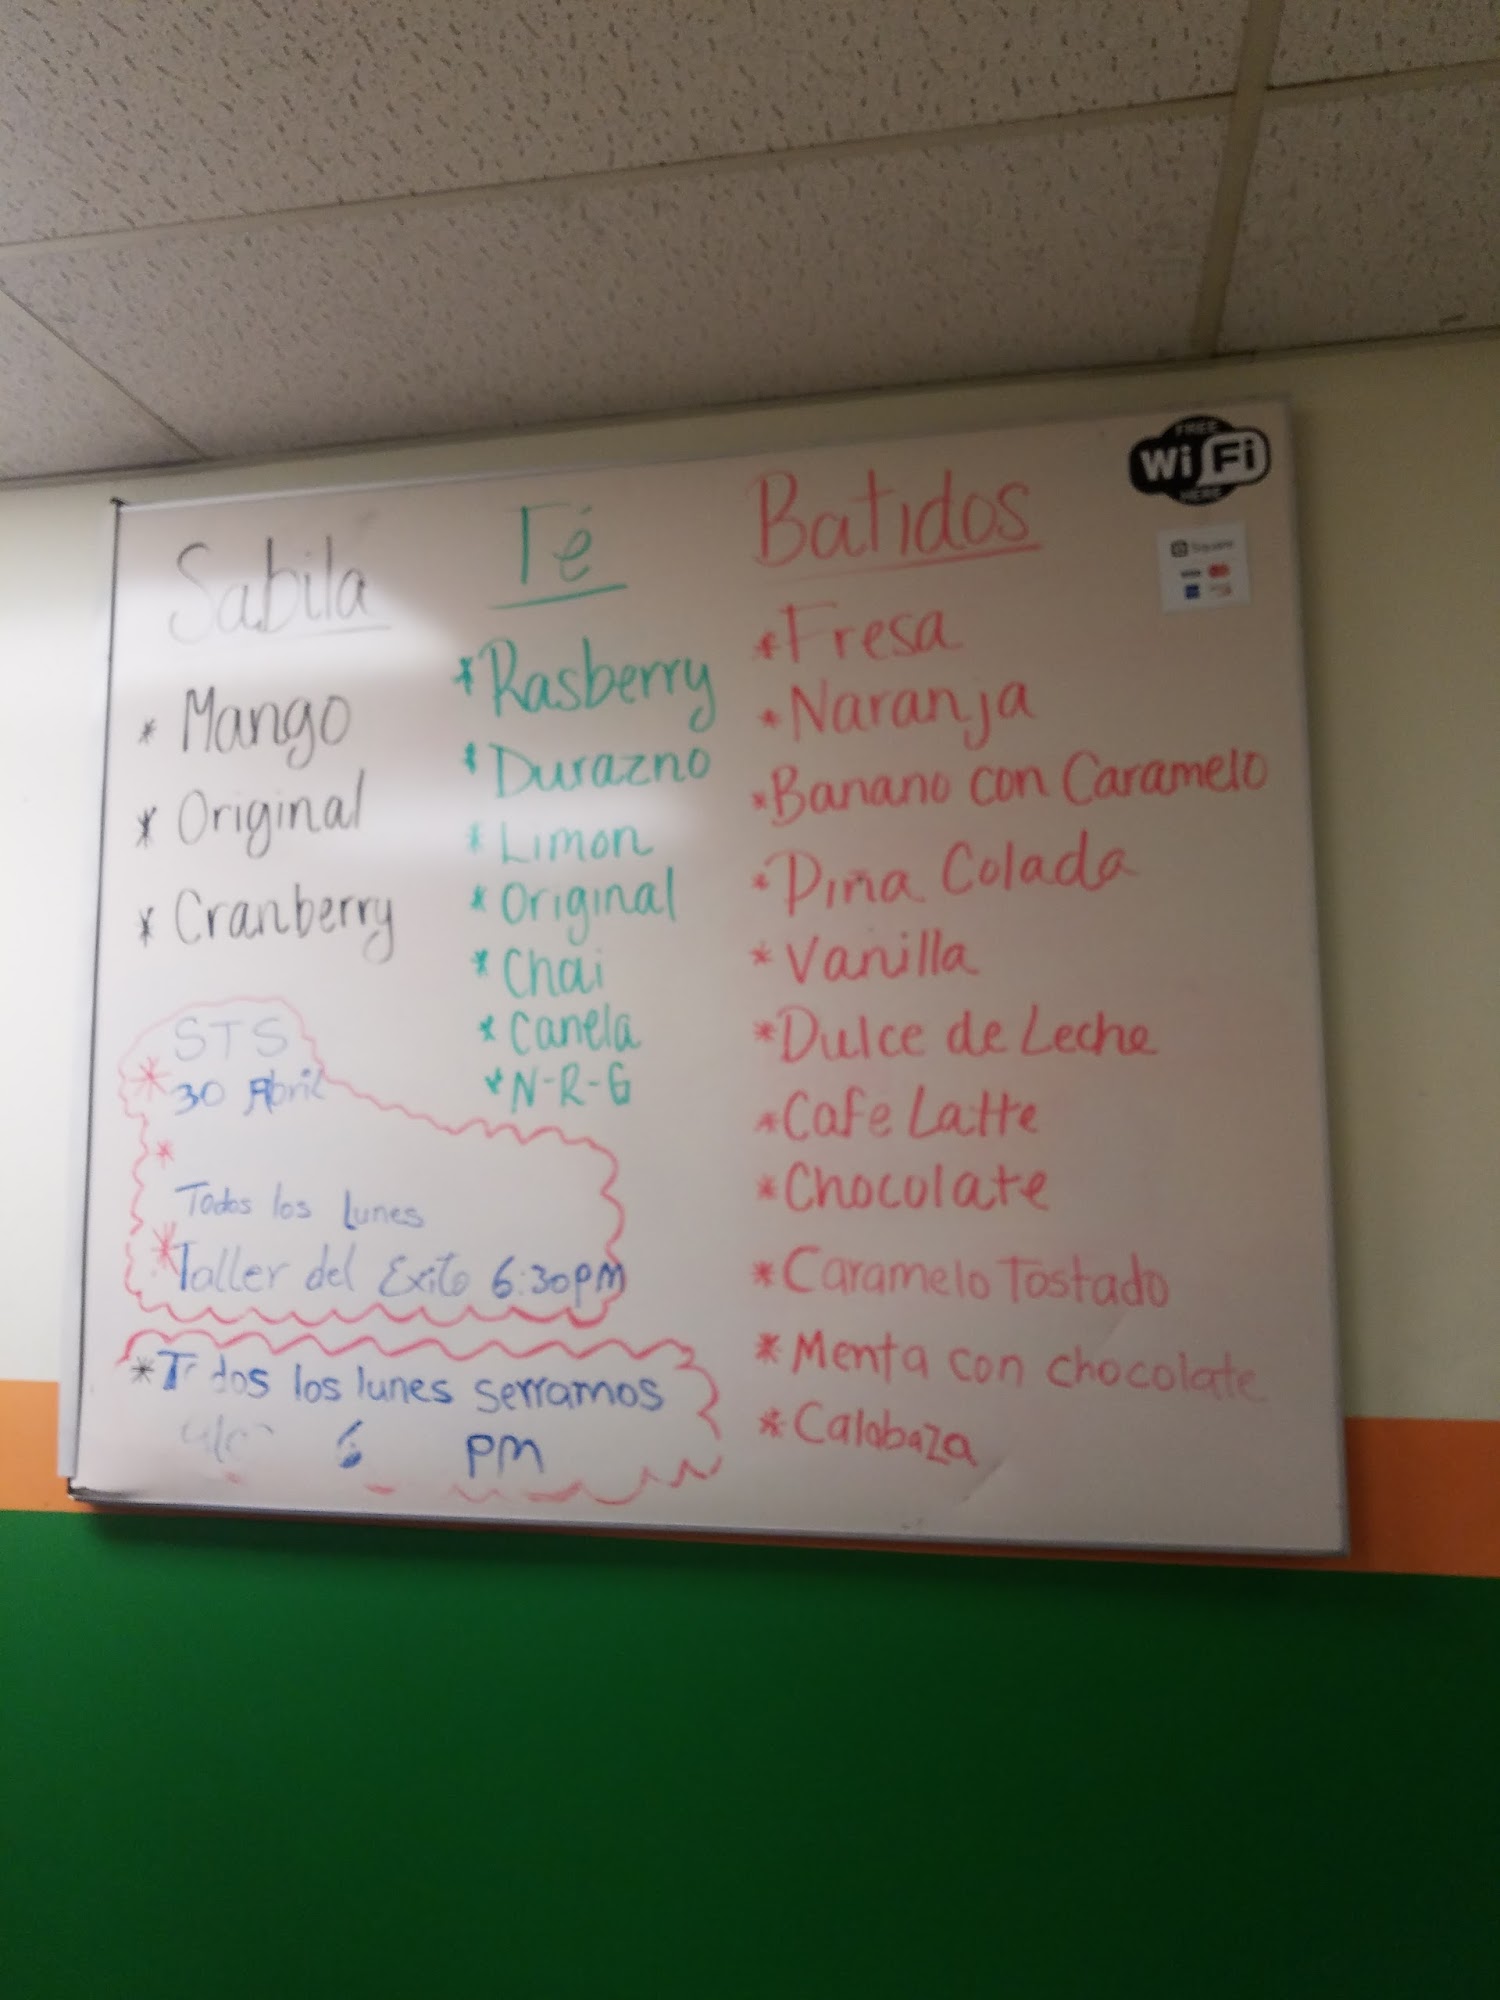 Sabila
* Mango
* Original
* Cranberry
Té
* Rasberry
* Durazno
* Limon
* Original
* Chai
* Canela
* N-R-G
Batidos
* Fresa
* Naranja
* Banano con Caramelo
* Piña Colada
* Vanilla
* Dulce de Leche
* Cafe Latte
* Chocolate
* Caramelo Tostado
* Menta con chocolate
* Calabaza
STS
* 30 Abril
*
Todos los Lunes
* Taller del Exito 6:30pm
* T dos los lunes serramos
6 pm
FREE
Wi Fi
HERE
Square